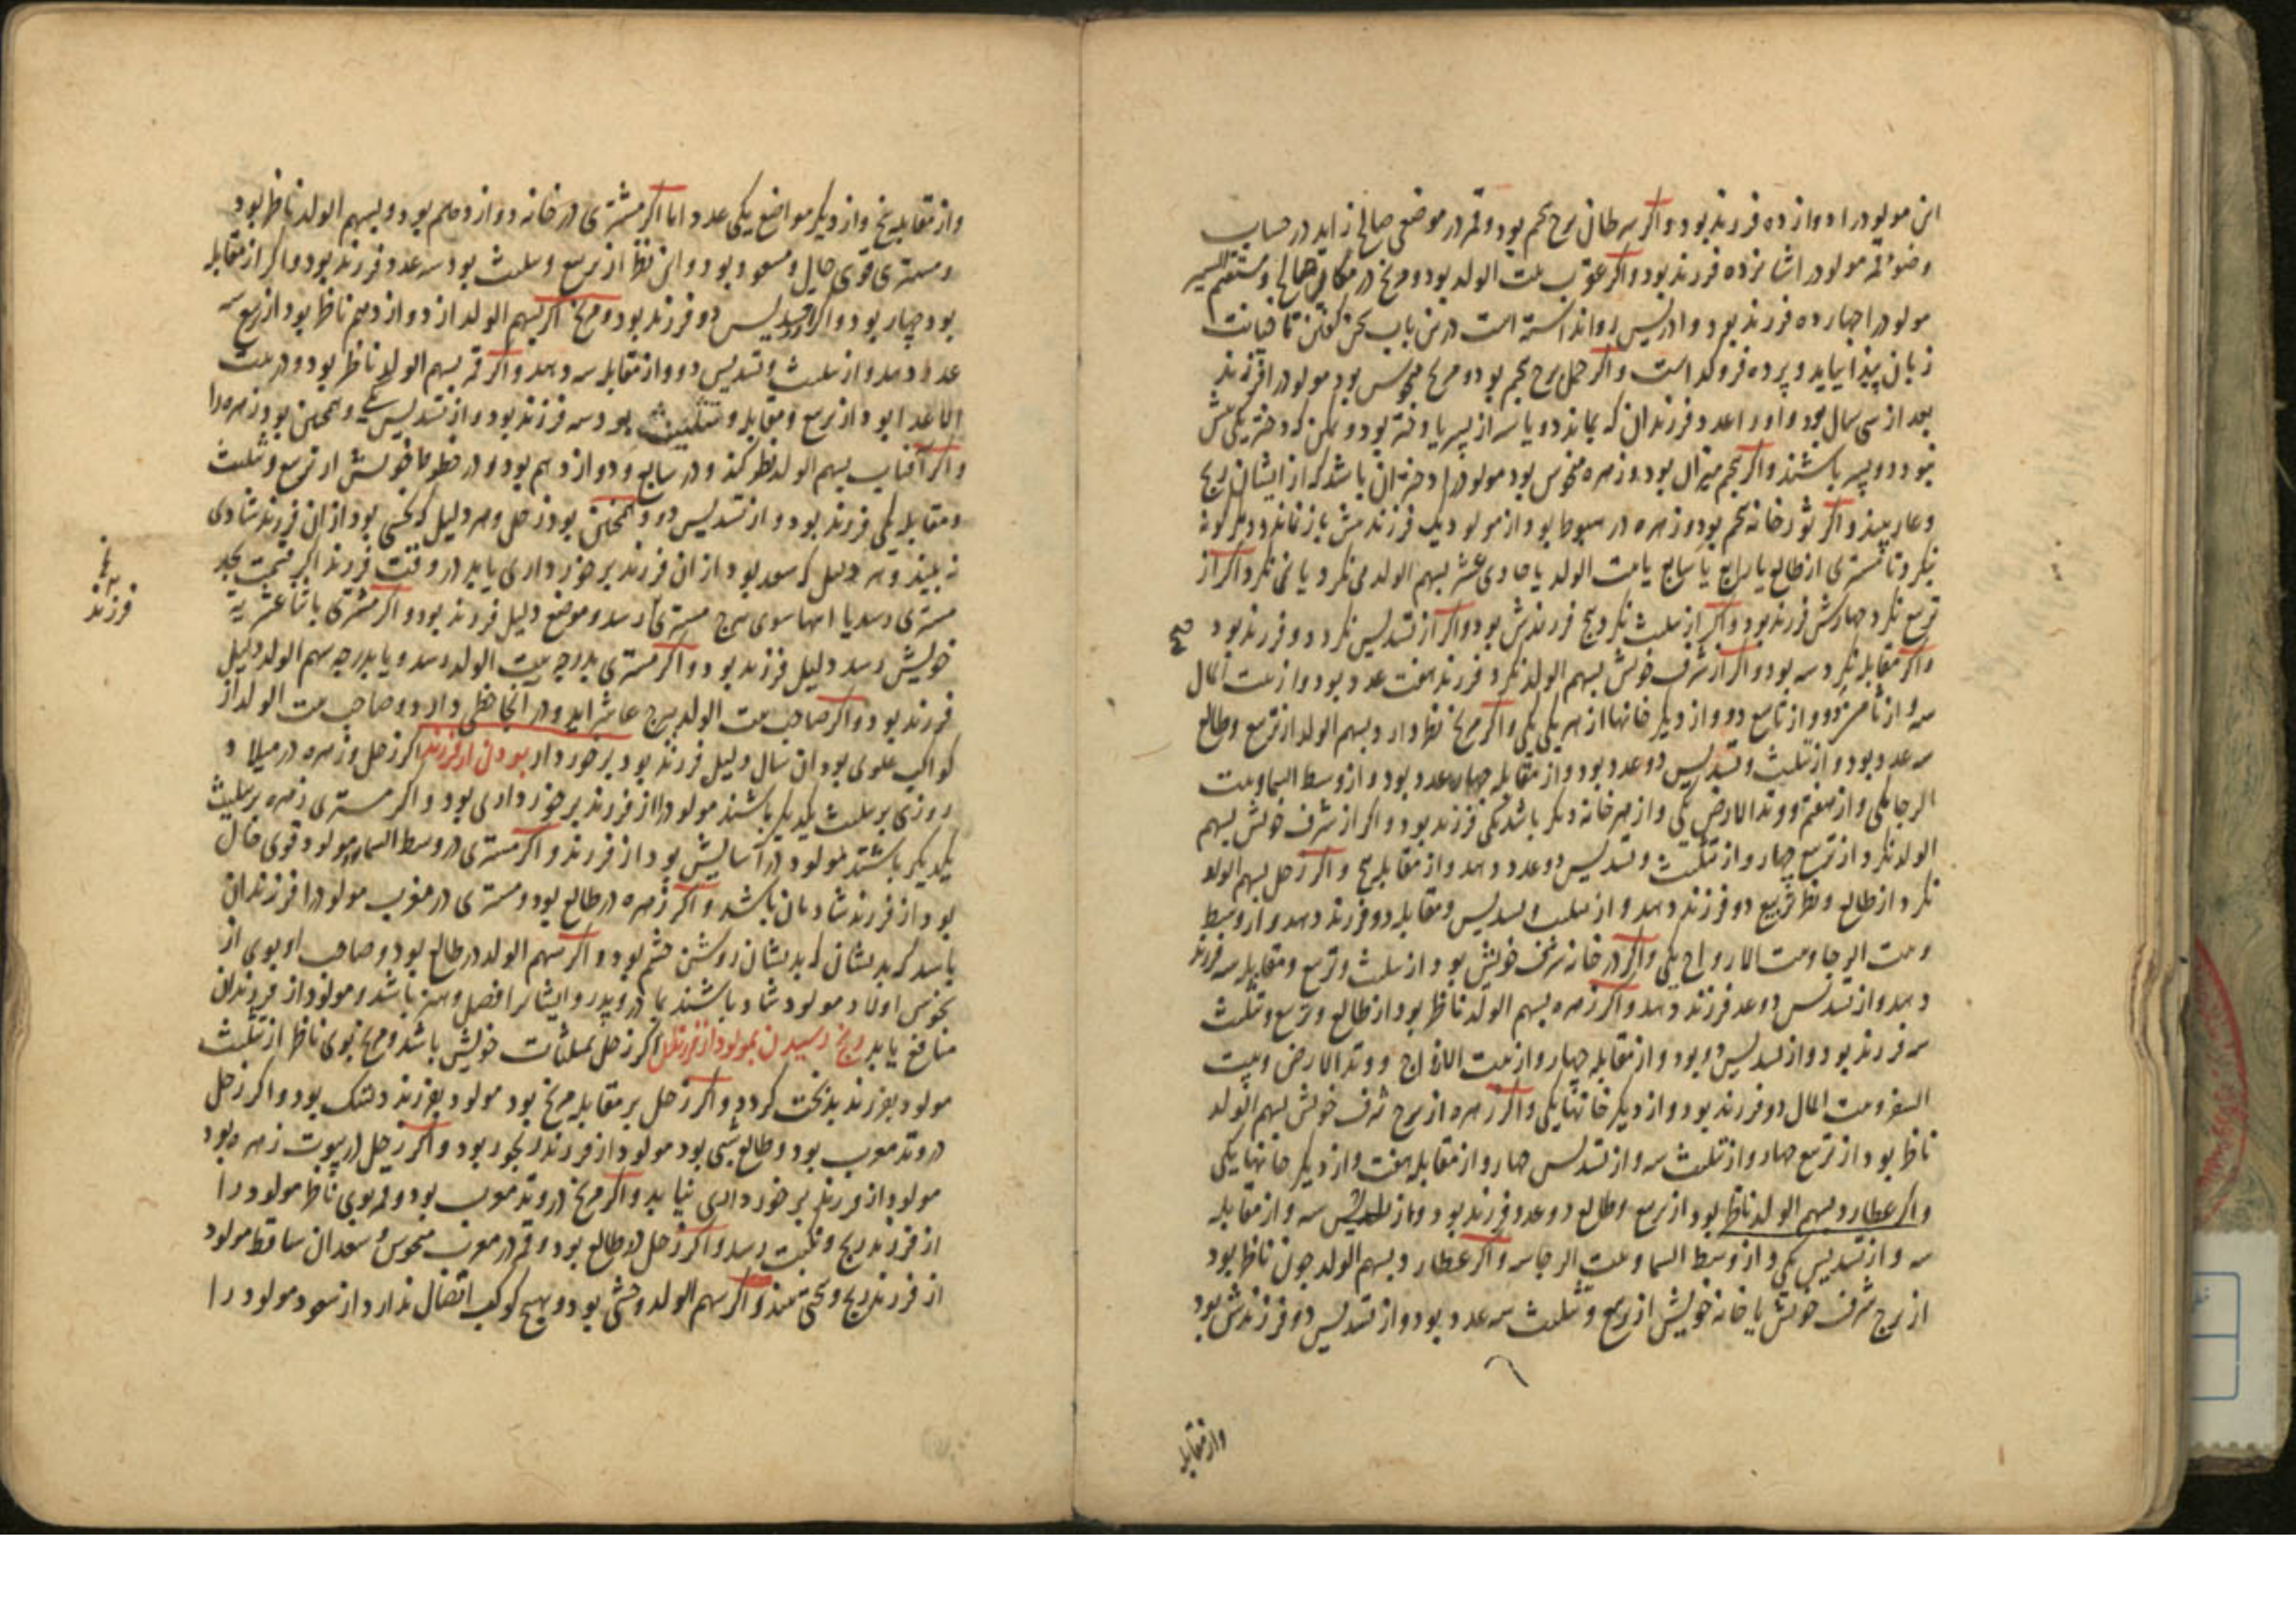 این مولود را دوازده فرزند بود واکر سرطان برج پنجم بود وقمر در موضعی صالح زاید در حساب
وضو قمر مولود را شانزده فرزند بود واکر عقرب بیت الولد بود ومریخ در مکانی صالح ومستقیم السیر
مولود را چهارده فرزند بود وادریس روا ندانسته است درین باب سخن کفتن
زبان واکر حمل برج پنجم بود ومریخ منحوس بود مولود را فرزند
بعد از سی سال بود واورا عدد فرزندان که بماند دو یا سه از پسر یا دختر بود وممکن که دختر یکی بیش
نبود ودو پسر باشند واکر پنجم میزان بود وزهره منحوس بود مولود را دختران باشد که از ایشان رنج
وعار بیند واکر ثور خانه پنجم بود وزهره در هبوط بود از مولود یک فرزند بیش باز نماند ودیکر کونه
بنکرد تا مشتری از طالع یا رابع یا سابع یا بیت الولد یا حادی عشر بسهم الولد می نکرد یا نمی نکرد اکر از
تربیع نکرد چهارکس فرزند بود واکر از تثلیث نکرد پنج فرزندش بود واکر از تسدیس نکرد دو فرزند بود
صح
واکر مقابله نکرد سه بود واکر از شرف خویش بسهم الولد نکرد فرزند هفت عدد بود واز بیت المال
سه واز ثامن دو واز تاسع دو واز دیکر خانها از هر یکی یکی واکر مریخ نظر دارد بسهم الولد از تربیع وطالع
سه عدد بود واز تثلیث وتسدیس دو عدد بود واز مقابله چهار عدد بود واز وسط السما وبیت
الرجا یکی واز هفتم ووتد الارض یکی واز هر خانه دیکر باشد یکی فرزند بود واکر از شرف خویش بسهم
الولد نکرد از تربیع چهار واز تثلیث وتسدیس دو عدد دهد واز مقابله پنج واکر زحل بسهم الولد
نکرد از طالع ونظر تربیع دو فرزند دهد واز تثلیث وتسدیس ومقابله دو فرزند دهد واز وسط
وبیت الرجا وبیت الازواج یکی واکر در خانه شرف خویش بود از تثلیث وتربیع ومقابله سه فرزند
دهد واز تسدیس دو عدد فرزند دهد واکر زهره بسهم الولد ناظر بود از طالع وتربیع وتثلیث
سه فرزند بود واز تسدیس دو بود واز مقابله چهار واز بیت الازواج ووتد الارض وبیت
السفر وبیت المال دو فرزند بود واز دیکر خانها یکی واکر زهره از برج شرف خویش بسهم الولد
ناظر بود از تربیع چهار واز تثلیث سه واز تسدیس چهار واز مقابله هفت واز دیکر خانها یکی
واکر عطارد بسهم الولد ناظر بود از تربیع وطالع دو عدد فرزند بود واز تثلیث سه واز مقابله
سه واز تسدیس یکی واز وسط السما وبیت الرجا سه واکر عطارد بسهم الولد چون ناظر بود
از برج شرف خویش یا خانه خویش از تربیع وتثلیث سه عدد بود واز تسدیس دو فرزندش بود
واز مقابله
واز مقابله پنج واز دیکر مواضع یکی عدد اما اکر مشتری در خانه دوازدهم بود وبسهم الولد ناظر بود
ومشتری قوی حال ومسعود بود واین نظر از تربیع وتثلیث بود سه عدد فرزند بود واکر از مقابله
بود چهار بود واکر از تسدیس دو فرزند بود ومریخ اکر بسهم الولد از دوازدهم ناظر بود از تربیع سه
عدد دهد واز تثلیث وتسدیس دو واز مقابله سه دهد واکر قمر بسهم الولد ناظر بود ودر بیت
الاعدا بود از تربیع ومقابله وتثلیث بود سه فرزند بود واز تسدیس یکی وهمچنین بود زهره را
واکر آفتاب بسهم الولد نظر کند ودر سابع ودوازدهم بود ودر حظوظ خویش از تربیع وتثلیث
ومقابله یکی فرزند بود واز تسدیس دو وهمچنین بود زحل وهر دلیل که نحس بود از آن فرزند شادی
نه بیند وهر دلیل که سعد بود از آن فرزند برخورداری یابد در وقت فرزند اکر
فرزند
مشتری رسد یا انتها سوی برج مشتری رسد وموضع دلیل فرزند بود واکر مشتری باثنا عشریه
خویش رسد دلیل فرزند بود واکر مشتری بدرجه بیت الولد رسد ویا بدرجه سهم الولد دلیل
فرزند بود واکر صاحب بیت الولد ببرج عاشر آید ودر آنجا حظی دارد وصاحب بیت الولد از
کواکب علوی بود آن سال دلیل فرزند بود برخوردار بودن از فرزند اکر زحل وزهره در میلاد
روزی بر تثلیث یکدیکر باشند مولود را از فرزند برخورداری بود واکر مشتری وزهره بر تثلیث
یکدیکر باشند مولود در آسایش بود از فرزند واکر مشتری در وسط السما بود مولود قوی حال
بود از فرزند شادمان باشد واکر زهره در طالع بود ومشتری در مغرب مولود را فرزندان
باشد که بدیشان روشن چشم بود واکر سهم الولد در طالع بود وصاحب او بوی از
نحوس اولاد مولود شاد باشند بمادر وپدر وایشان را فضل وهنر باشد ومولود از فرزندان
منافع یابد رنج رسیدن بمولود از فرزندان اکر زحل بمثلثات خویش باشد ومریخ بوی ناظر از تثلیث
مولود بفرزند بدبخت کردد واکر زحل بر مقابله مریخ بود مولود بفرزند دلتنک بود واکر زحل
در وتد مغرب بود وطالع شبی بود مولود از فرزند رنجور بود واکر زحل در بیوت زهره بود
مولود از فرزند برخورداری نیابد واکر مریخ در وتد مغرب بود وقمر بوی ناظر مولود را
از فرزند رنج ونکبت رسد واکر زحل در طالع بود وقمر در مغرب منحوس وسعدان ساقط مولود
از فرزند رنج وسختی بیند واکر سهم الولد وحشی بود وبهیچ کوکب اتصال ندارد از سعود مولود را